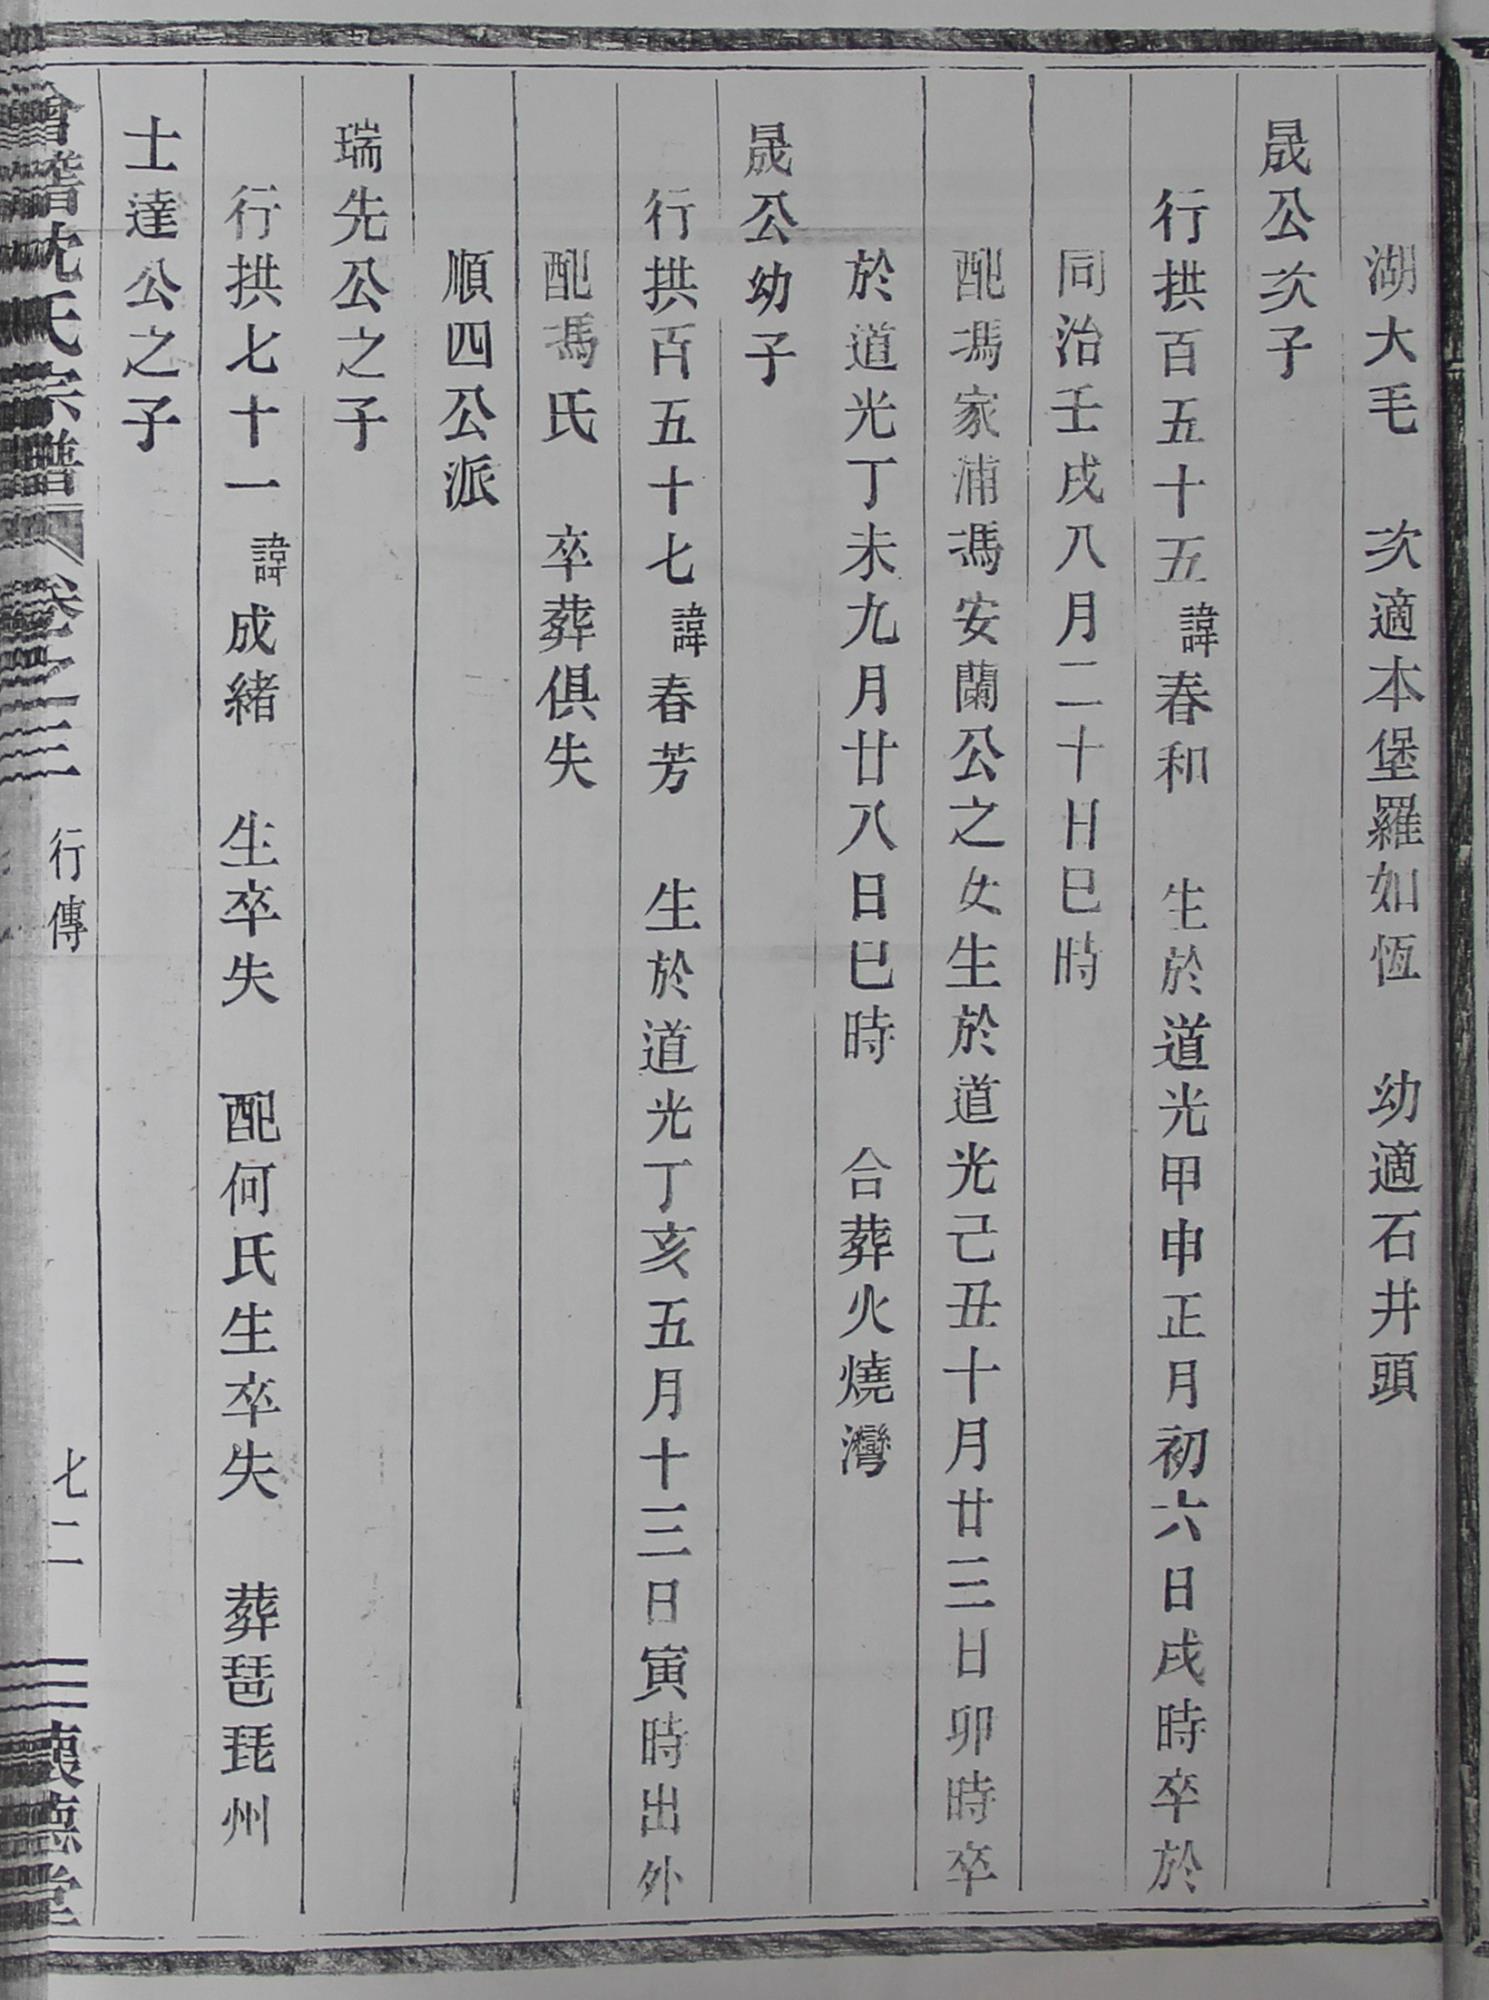 湖大毛　次適本堡羅如恆　幼適石井頭
晟公次子
行拱百五十五諱春和　生於道光甲申正月初六日戌時卒於
同治壬戌八月二十日巳時
配馮家浦馮安蘭公之女生於道光己丑十月廿三日卯時卒
於道光丁未九月廿八日巳時　合葬火燒灣
晟公幼子
行拱百五十七諱春芳　生於道光丁亥五月十三日寅時出外
配馮氏　卒葬俱失
順四公派
瑞先公之子
行拱七十一諱成緒　生卒失　配何氏生卒失　葬琶琵州
士達公之子
會稽沈氏宗譜　卷之三　行傳　七二　懷德堂